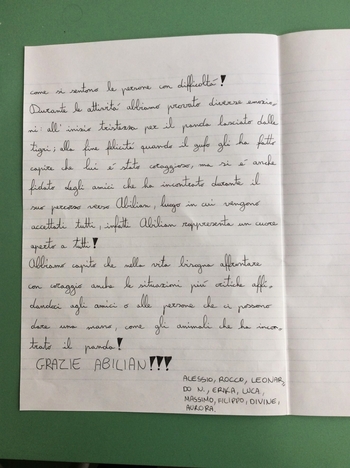 come si sentono le persone con difficoltà!
Durante le attività abbiamo provato diverse emozio-
ni: all'inizio tristezza per il panda lasciato dalle
tigri; alla fine felicità quando il gufo gli ha fatto
capire che lui è stato coraggioso, ma si è anche
fidato degli amici che ha incontrato durante il
suo percorso verso Abilian, luogo in cui vengono
accettati tutti, infatti Abilian rappresenta un cuore
aperto a tutti!
Abbiamo capito che nella vita bisogna affrontare
con coraggio anche le situazioni più critiche affi-
dandoci agli amici o alle persone che ci possono
dare una mano, come gli animali che ha incon-
trato il panda!
GRAZIE ABILIAN!!!
ALESSIO, ROCCO, LEONAR,
DO N., ERIKA, LUCA,
MASSIMO, FILIPPO, DIVINE,
AURORA